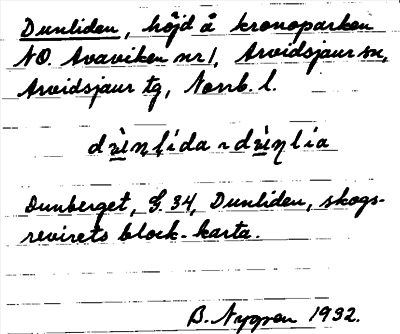 Dunliden, höjd å kronoparken
NO. Avaviken nr 1, Arvidsjaur sn,
Arvidsjaur tg, Norrb. l.
dùnlida ~ dùnlia
Dunberget, G. 34, Dunliden, skogs-
revirets block-karta.
B. Nygren 1932.